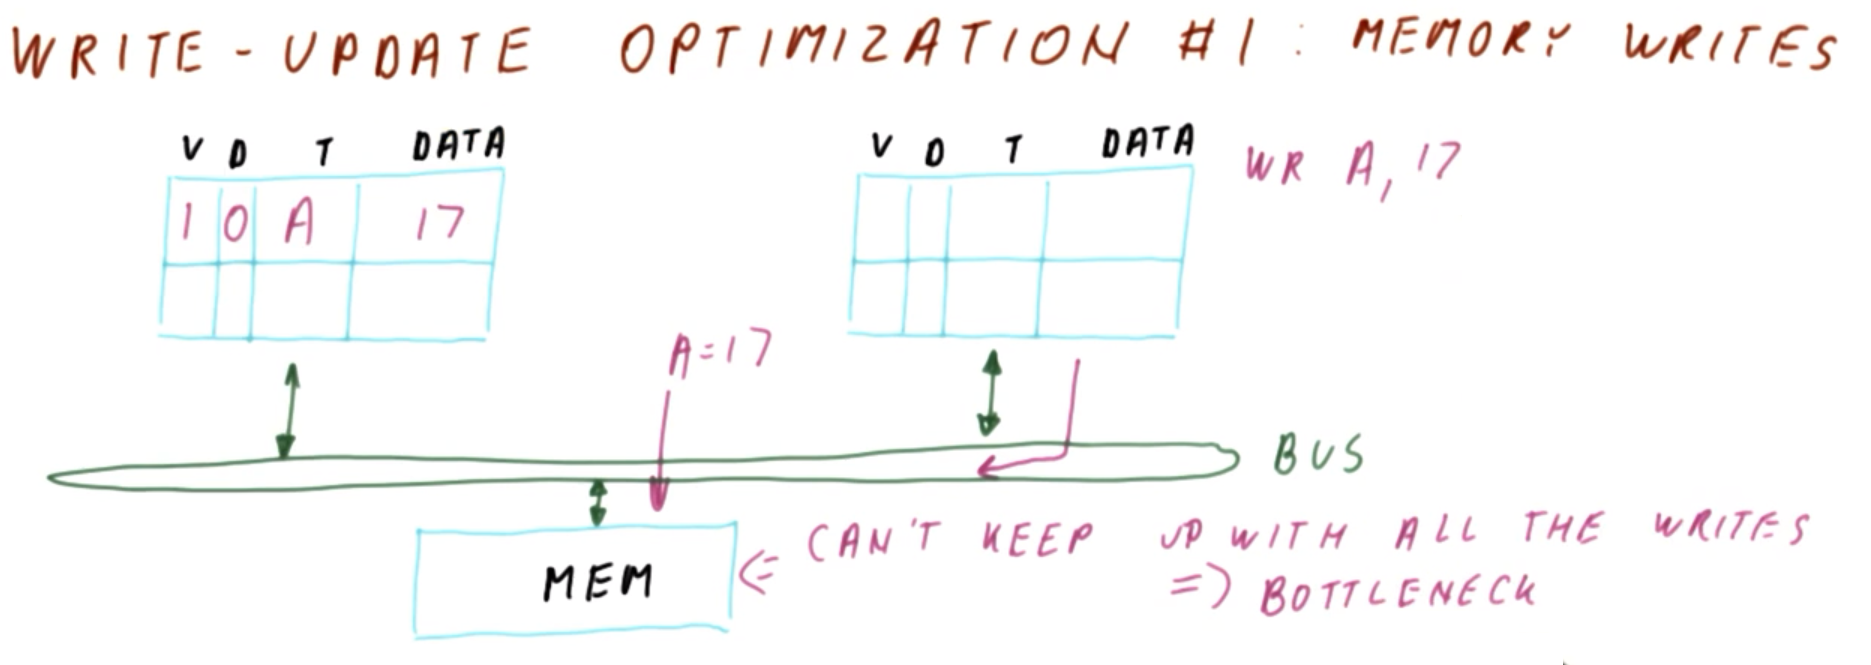 WRITE-UPDATE OPTIMIZATION #1: MEMORY WRITES
V D T DATA
1 0 A 17
V D T DATA
WR A, 17
A=17
BUS
MEM
<= CAN'T KEEP UP WITH ALL THE WRITES
=> BOTTLENECK